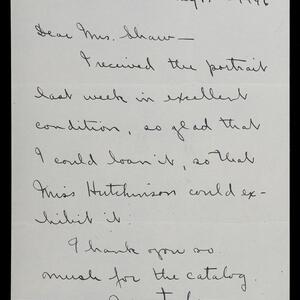 1946
Dear Mrs. Shaw—
I received the portrait
last week in excellent
condition, so glad that
I could loan it, so that
Miss Hutchinson could ex-
hibit it.
I thank you so
much for the catalog.